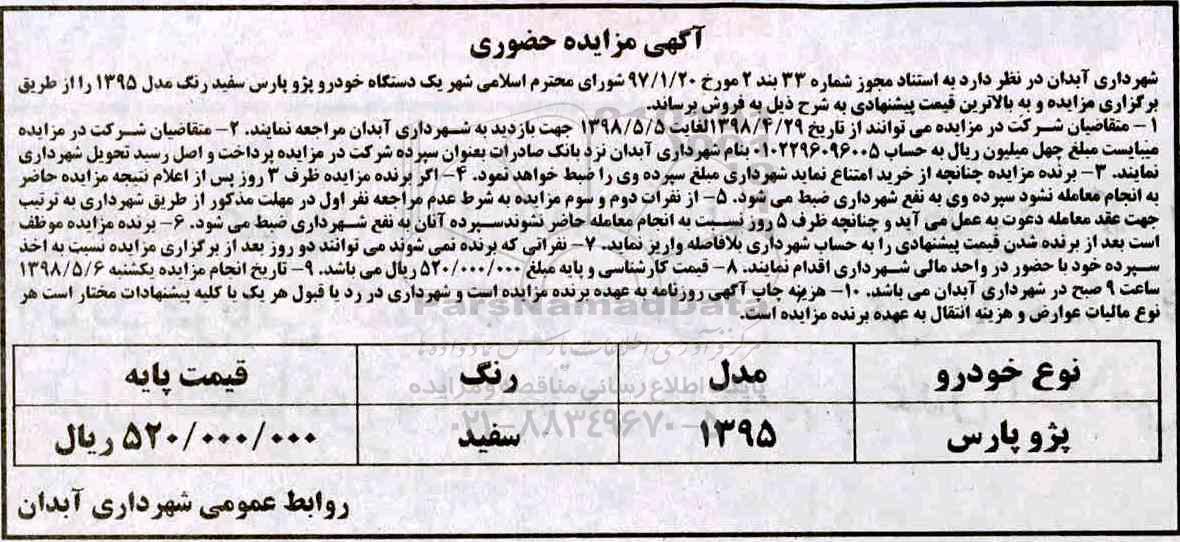 آگهی مزایده حضوری
شهرداری آبدان در نظر دارد به استناد مجوز شماره ۳۳ بند ۲ مورخ ۹۷/۱/۲۰ شورای محترم اسلامی شهر یک دستگاه خودرو پژو پارس سفید رنگ مدل ۱۳۹۵ را از طریق
برگزاری مزایده و به بالاترین قیمت پیشنهادی به شرح ذیل به فروش برساند.
۱- متقاضیان شرکت در مزایده می توانند از تاریخ ۱۳۹۸/۴/۲۹لغایت ۱۳۹۸/۵/۵ جهت بازدید به شهرداری آبدان مراجعه نمایند. ۲- متقاضیان شرکت در مزایده
میبایست مبلغ چهل میلیون ریال به حساب ۰۱۰۲۲۹۶۰۹۶۰۰۵ بنام شهرداری آبدان نزد بانک صادرات بعنوان سپرده شرکت در مزایده پرداخت و اصل رسید تحویل شهرداری
نمایند. ۳- برنده مزایده چنانچه از خرید امتناع نماید شهرداری مبلغ سپرده وی را ضبط خواهد نمود. ۴- اگر برنده مزایده ظرف ۳ روز پس از اعلام نتیجه مزایده حاضر
به انجام معامله نشود سپرده وی به نفع شهرداری ضبط می شود. ۵- از نفرات دوم و سوم مزایده به شرط عدم مراجعه نفر اول در مهلت مذکور از طریق شهرداری به ترتیب
جهت عقد معامله دعوت به عمل می آید و چنانچه ظرف ۵ روز نسبت به انجام معامله حاضر نشوندسپرده آنان به نفع شهرداری ضبط می شود. ۶- برنده مزایده موظف
است بعد از برنده شدن قیمت پیشنهادی را به حساب شهرداری بلافاصله واریز نماید. ۷- نفراتی که برنده نمی شوند می توانند دو روز بعد از برگزاری مزایده نسبت به اخذ
سپرده خود با حضور در واحد مالی شهرداری اقدام نمایند. ۸- قیمت کارشناسی و پایه مبلغ ۵۲۰/۰۰۰/۰۰۰ ریال می باشد. ۹- تاریخ انجام مزایده یکشنبه ۱۳۹۸/۵/۶
ساعت ۹ صبح در شهرداری آبدان می باشد. ۱۰- هزینه چاپ آگهی روزنامه به عهده برنده مزایده است و شهرداری در رد یا قبول هر یک یا کلیه پیشنهادات مختار است هر
نوع مالیات عوارض و هزینه انتقال به عهده برنده مزایده است.
ParsNamadData
مرکز فرآوری اطلاعات پارس نماد داده ها
نوع خودرو مدل رنگ قیمت پایه
پایگاه اطلاع رسانی مناقصه و مزایده
پژو پارس ۱۳۹۵ سفید ۵۲۰/۰۰۰/۰۰۰ ریال
۰۲۱-۸۸۳۴۹۶۷۰
روابط عمومی شهرداری آبدان